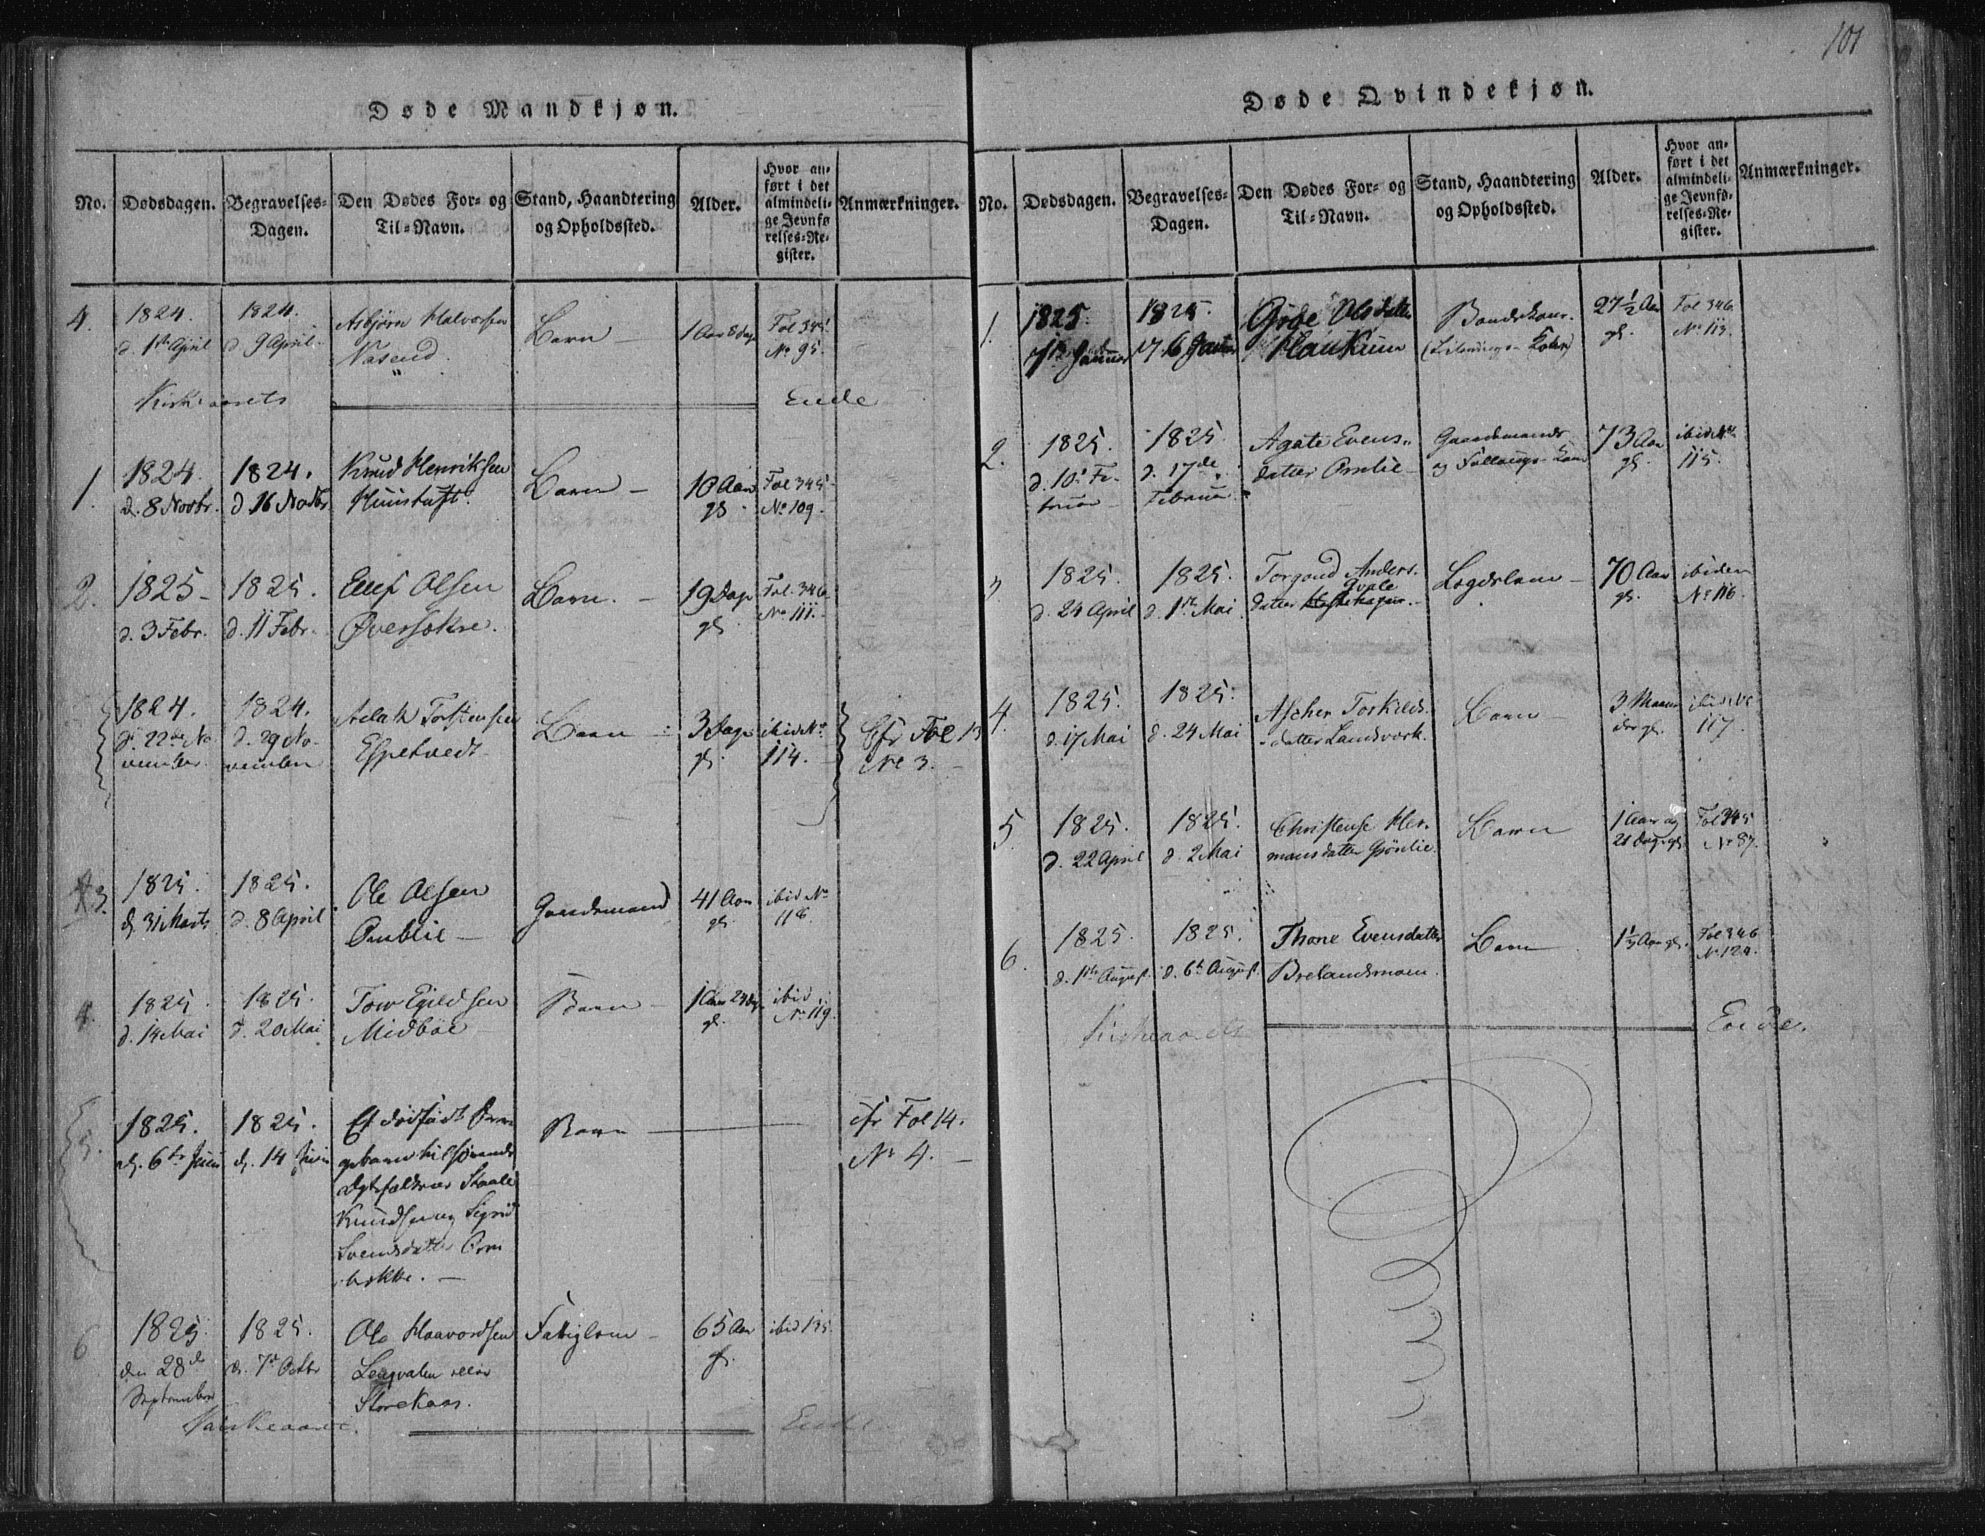 101
Døde Mandkjøn.
No. Dødsdagen. Begravelses-Dagen. Den Dødes For- og Til-Navn. Stand, Haandtering og Opholdssted. Alder. Hvor anført i det almindelige Jevnførelses-Register. Anmærkninger.
4. 1824. d. 1ste April
1824. d. 9 April
Asbjørn Halvorsen
Nasend
Barn
1 Aar 8 Dag
Fol 345
No 95.
Kirkeaarets Ende
1. 1824. d. 8 Novbr.
1824. d. 16 Novbr
Knud Henriksen
Huustuft.
Barn
10 Aar gl.
Fol 345
No 109.
2. 1825 d. 3 Febr.
1825. d. 11 Febr.
Ellef Olsen
Øversokre.
Barn.
19 Dage gl.
Fol 346
No 111.
1824. d. 22de November
1824. d. 29 November
Aslak Torstensen
Espetvedt
Barn
3 Dage gl.
ibid No
114.
Cfr Fol 13
No 3.
3. 1825. d. 31 Marts
1825. d. 8 April
Ole Olsen
Omblie
Gaardmand
41 Aar gl.
ibid No
118.
4. 1825. d. 14 Mai
1825. d. 20 Mai
Tow Egildsen
Midbøe
Barn
1 Aar 24 Dg gl.
ibid
No 119.
5. 1825. d. 6te Juni
1825. d. 14 Juni
Et dødfødt Dren
gebarn tilhørende
Ægtefolkene Staale
Knudsen og Sigrid
Svensdatter Om
bekke.
Barn
cfr Fol 14.
No 4.
6 1825. den 28de September
1825. d. 7de Octbr
Ole Haavordsen
Legvalen eller
Storekaas.
Fattiglem
65 Aar gl.
ibid 135.
Kirkeaarets Ende
Døde Qvindekjøn.
No. Dødsdagen. Begravelses-Dagen. Den Dødes For- og Til-Navn. Stand, Haandtering og Opholdssted. Alder. Hvor anført i det almindelige Jevnførelses-Register. Anmærkninger.
1. 1825.
1825. 6 Januar
Olsdatter
Haukuum
Bondekone
27 1/2 Aar gl.
Fol 346
No 113.
2. 1825. d. 10de Februar
1825. d. 17de Februar
Agate Evens
datter Omlie
Gaardmands
og Kone
73 Aar gl.
ibid No
115.
3 1825. d. 24 April
1825. d. 1ste Mai
Torgond Anders
datter Qvale
Lægdslem
70 Aar gl.
ibidem
No 116.
4. 1825. d. 17 Mai
1825. d. 24 Mai
Ascher Torkilds
datter Landsverk.
Barn
3 Maaneder gl.
ibid No
117.
5. 1825. d. 22 April
1825. d. 2 Mai
Christense Her
mansdatter Grønlie
Barn
1 Aar og 21 Dag gl.
Fol 345
No 87.
6. 1825. d. 1ste August
1825. d. 6te August.
Thone Evensdatter
Brelandsmoen.
Barn
1 1/2 Aar gl.
Fol 346
No 124.
Kirkeaarets Ende.